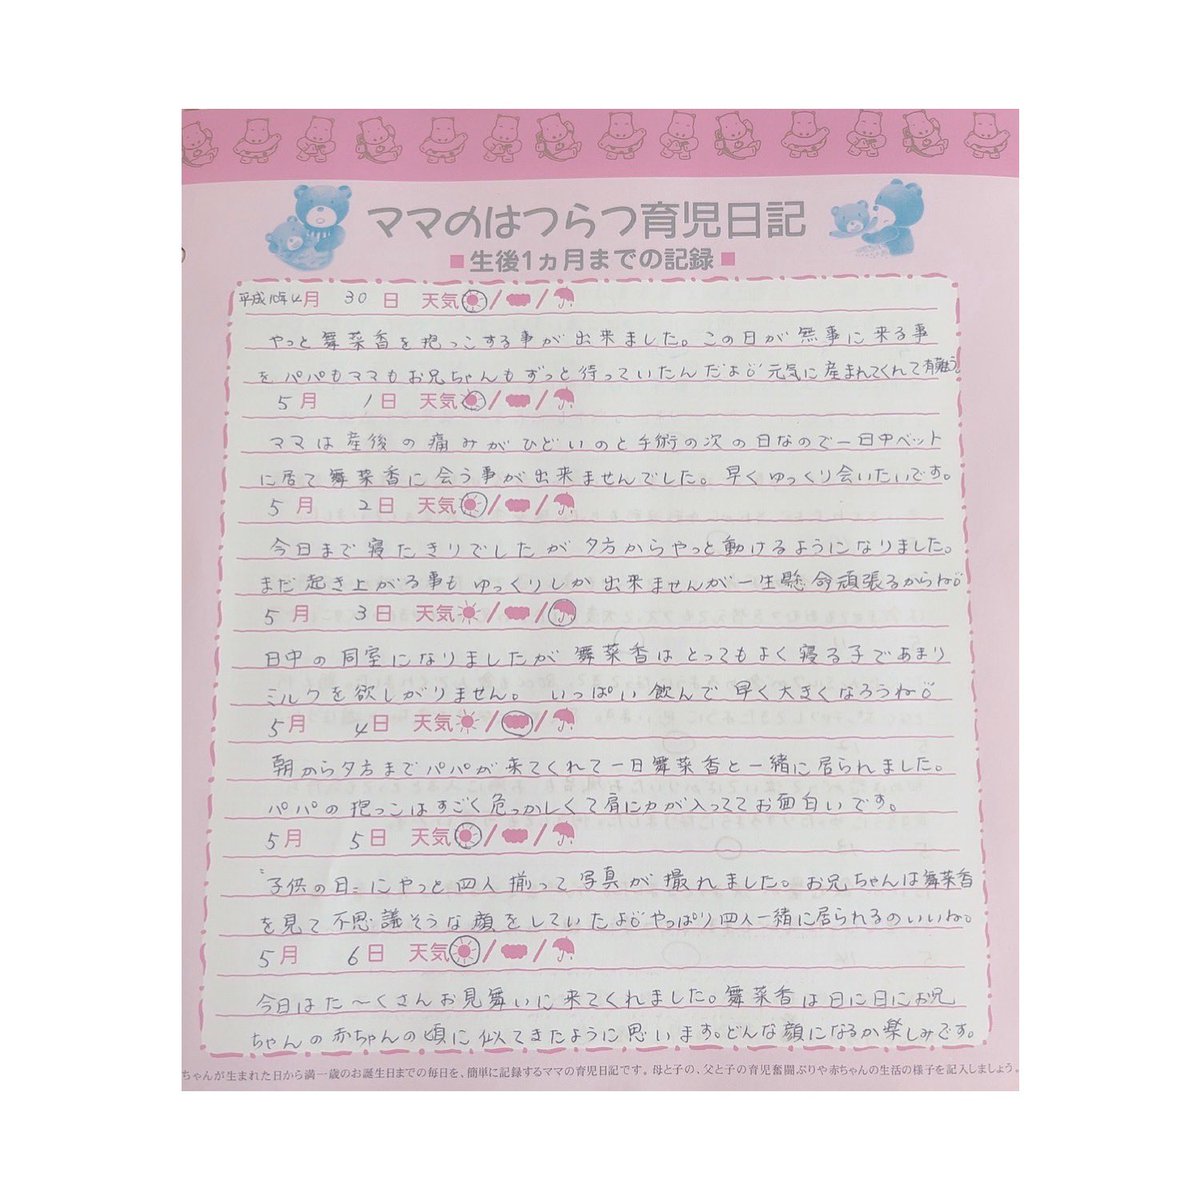 ママのはつらつ育児日記
■生後1ヵ月までの記録■
平成10年4月 30日 天気 / /
やっと舞菜香を抱っこする事が出来ました。この日が無事に来る事
をパパもママもお兄ちゃんもずっと待っていたんだよ♡元気に産まれてくれて有難う。
5月 1日 天気 / /
ママは産後の痛みがひどいのと手術の次の日なので一日中ベット
に居て舞菜香に会う事が出来ませんでした。早くゆっくり会いたいです。
5月 2日 天気 / /
今日まで寝たきりでしたが夕方からやっと動けるようになりました。
まだ起き上がる事もゆっくりしか出来ませんが一生懸命頑張るからね♡
5月 3日 天気 / /
日中の同室になりましたが舞菜香はとってもよく寝る子であまり
ミルクを欲しがりません。いっぱい飲んで早く大きくなろうね♡
5月 4日 天気 / /
朝から夕方までパパが来てくれて一日舞菜香と一緒に居られました。
パパの抱っこはすごく危っかしくて肩に力が入っててお面白いです。
5月 5日 天気 / /
〝子供の日〟にやっと四人揃って写真が撮れました。お兄ちゃんは舞菜香
を見て不思議そうな顔をしていたよ♡やっぱり四人一緒に居られるのいいね。
5月 6日 天気 / /
今日はた〜くさんお見舞いに来てくれました。舞菜香は日に日にお兄
ちゃんの赤ちゃんの頃に似てきたように思います。どんな顔になるか楽しみです。
ちゃんが生まれた日から満一歳のお誕生日までの毎日を、簡単に記録するママの育児日記です。母と子の、父と子の育児奮闘ぶりや赤ちゃんの生活の様子を記入しましょう。